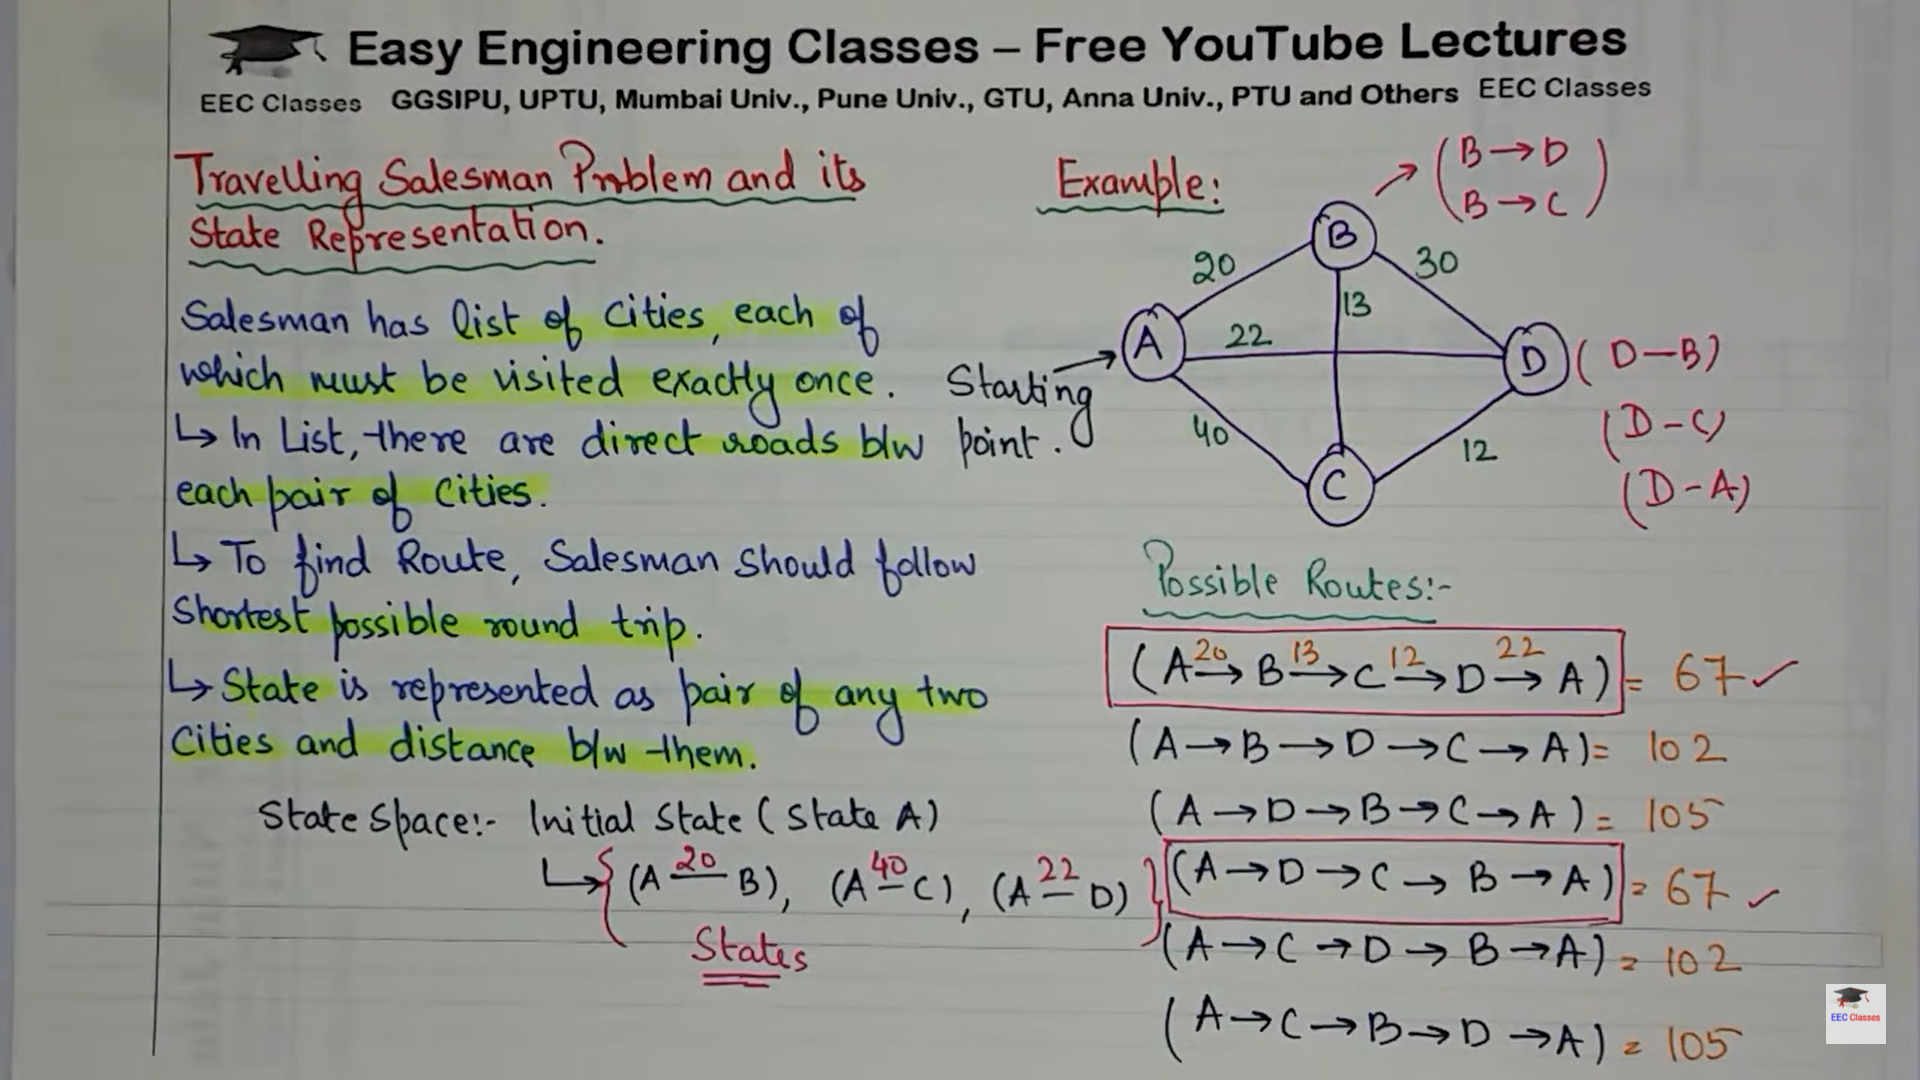 Easy Engineering Classes – Free YouTube Lectures
EEC Classes GGSIPU, UPTU, Mumbai Univ., Pune Univ., GTU, Anna Univ., PTU and Others EEC Classes
Travelling Salesman Problem and its
State Representation.
Salesman has list of Cities, each of
which must be visited exactly once.
↳ In List, there are direct roads b/w
each pair of Cities.
↳ To find Route, Salesman should follow
Shortest possible round trip.
↳ State is represented as pair of any two
Cities and distance b/w them.
State Space:- Initial State (State A)
↳ { (A 20 — B), (A 40 — C), (A 22 — D) }
States
Example:
(B → D
B → C)
B
20
30
13
A
22
D
(D — B)
Starting
point.
(D - C)
40
12
(D - A)
C
Possible Routes:-
(A 20→ B 13→ C 12→ D 22→ A) = 67 ✓
(A → B → D → C → A) = 102
(A → D → B → C → A) = 105
(A → D → C → B → A) = 67 ✓
(A → C → D → B → A) = 102
(A → C → B → D → A) = 105
EEC Classes